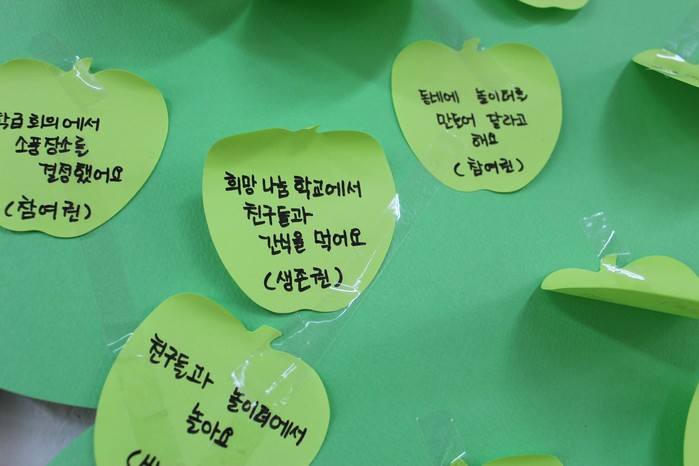 학급회의에서
소풍장소를
결정했어요
(참여권)
동네에 놀이터를
만들어 달라고
해요
(참여권)
희망 나눔 학교에서
친구들과
간식을 먹어요
(생존권)
친구들과
놀이터에서
놀아요